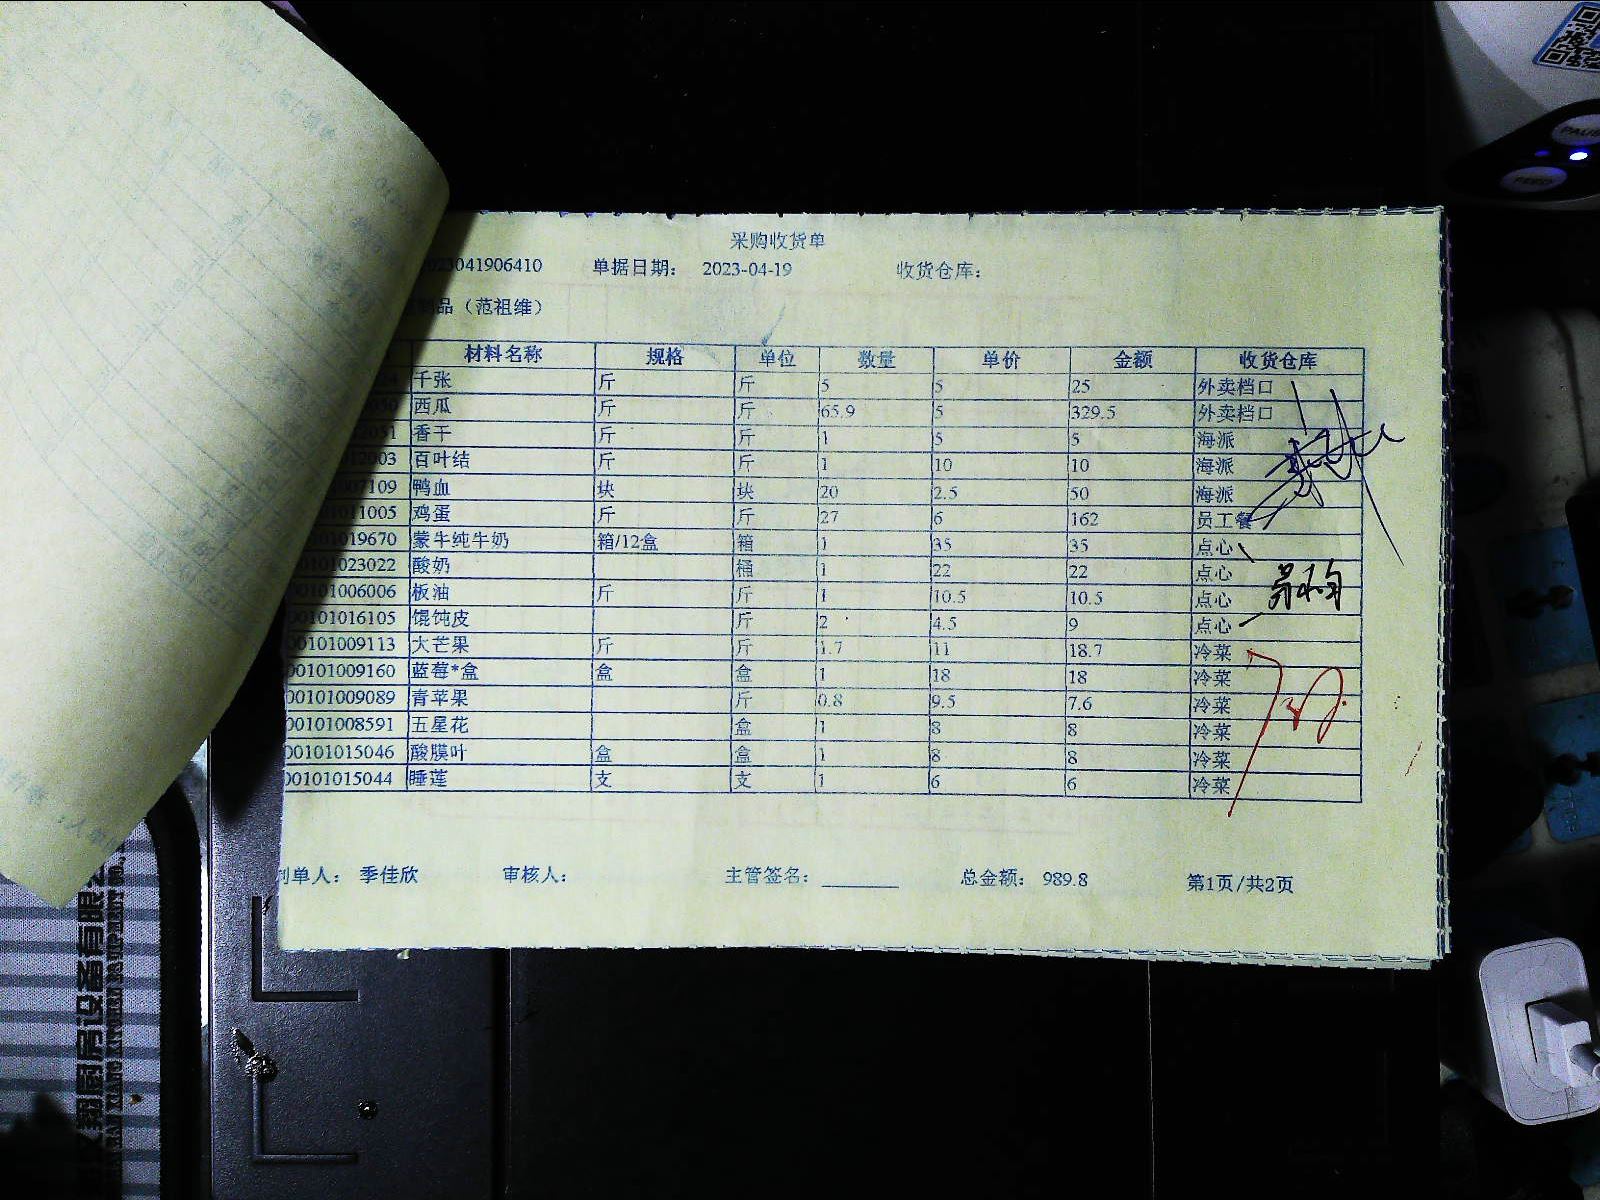 采购收货单
023041906410 单据日期： 2023-04-19 收货仓库：
制品（范祖维）
材料名称 规格 单位 数量 单价 金额 收货仓库
千张 斤 斤 5 5 25 外卖档口
西瓜 斤 斤 65.9 5 329.5 外卖档口
香干 斤 斤 1 5 5 海派
百叶结 斤 斤 1 10 10 海派
7109 鸭血 块 块 20 2.5 50 海派
011005 鸡蛋 斤 斤 27 6 162 员工餐
01019670 蒙牛纯牛奶 箱/12盒 箱 1 35 35 点心
0101023022 酸奶 桶 1 22 22 点心
0101006006 板油 斤 斤 1 10.5 10.5 点心
00101016105 馄饨皮 斤 2 4.5 9 点心
00101009113 大芒果 斤 斤 1.7 11 18.7 冷菜
00101009160 蓝莓*盒 盒 盒 1 18 18 冷菜
00101009089 青苹果 斤 0.8 9.5 7.6 冷菜
00101008591 五星花 盒 1 8 8 冷菜
00101015046 酸膜叶 盒 盒 1 8 8 冷菜
00101015044 睡莲 支 支 1 6 6 冷菜
制单人： 季佳欣 审核人： 主管签名： 总金额： 989.8 第1页/共2页
PAUSE
FEED
厨房设备有限